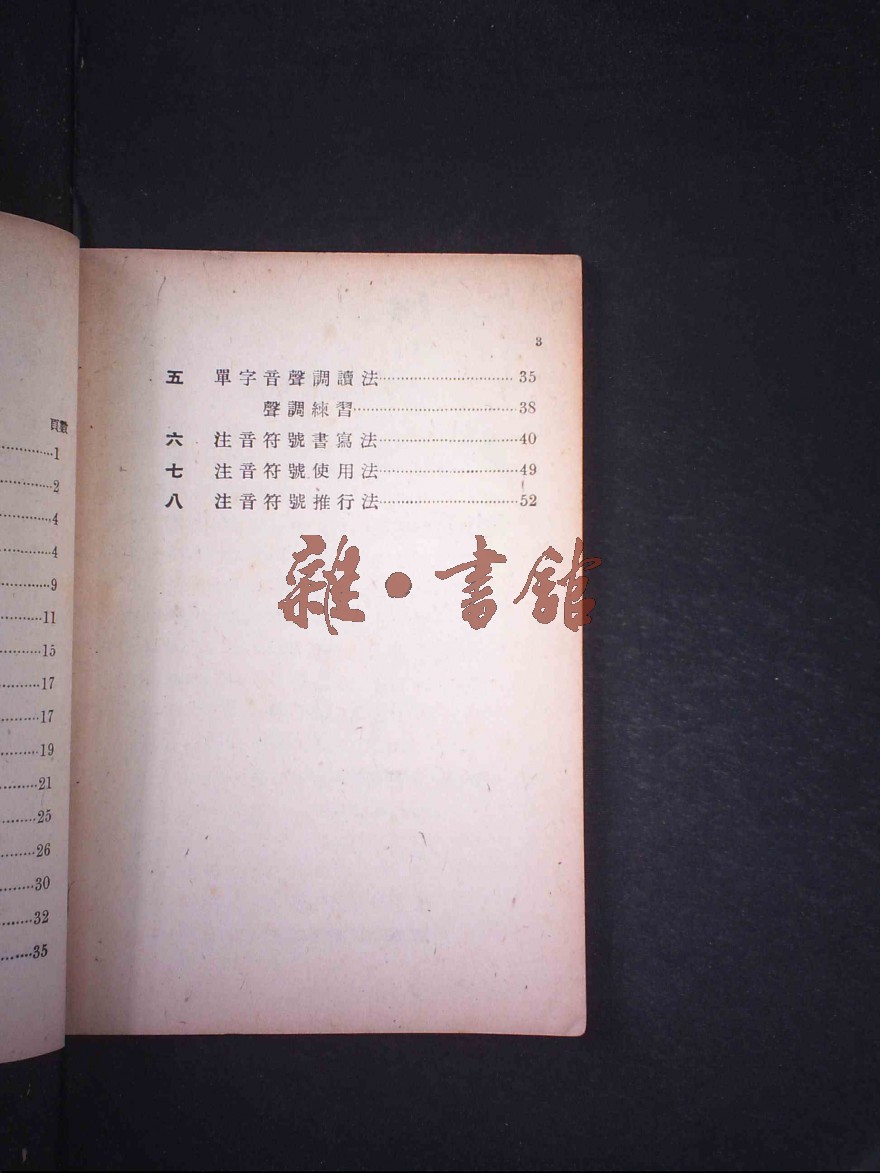 頁數
1
2
4
4
9
11
15
17
17
19
21
25
26
30
32
35
3
五 單字音聲調讀法 35
聲調練習 38
六 注音符號書寫法 40
七 注音符號使用法 49
八 注音符號推行法 52
雜·書館